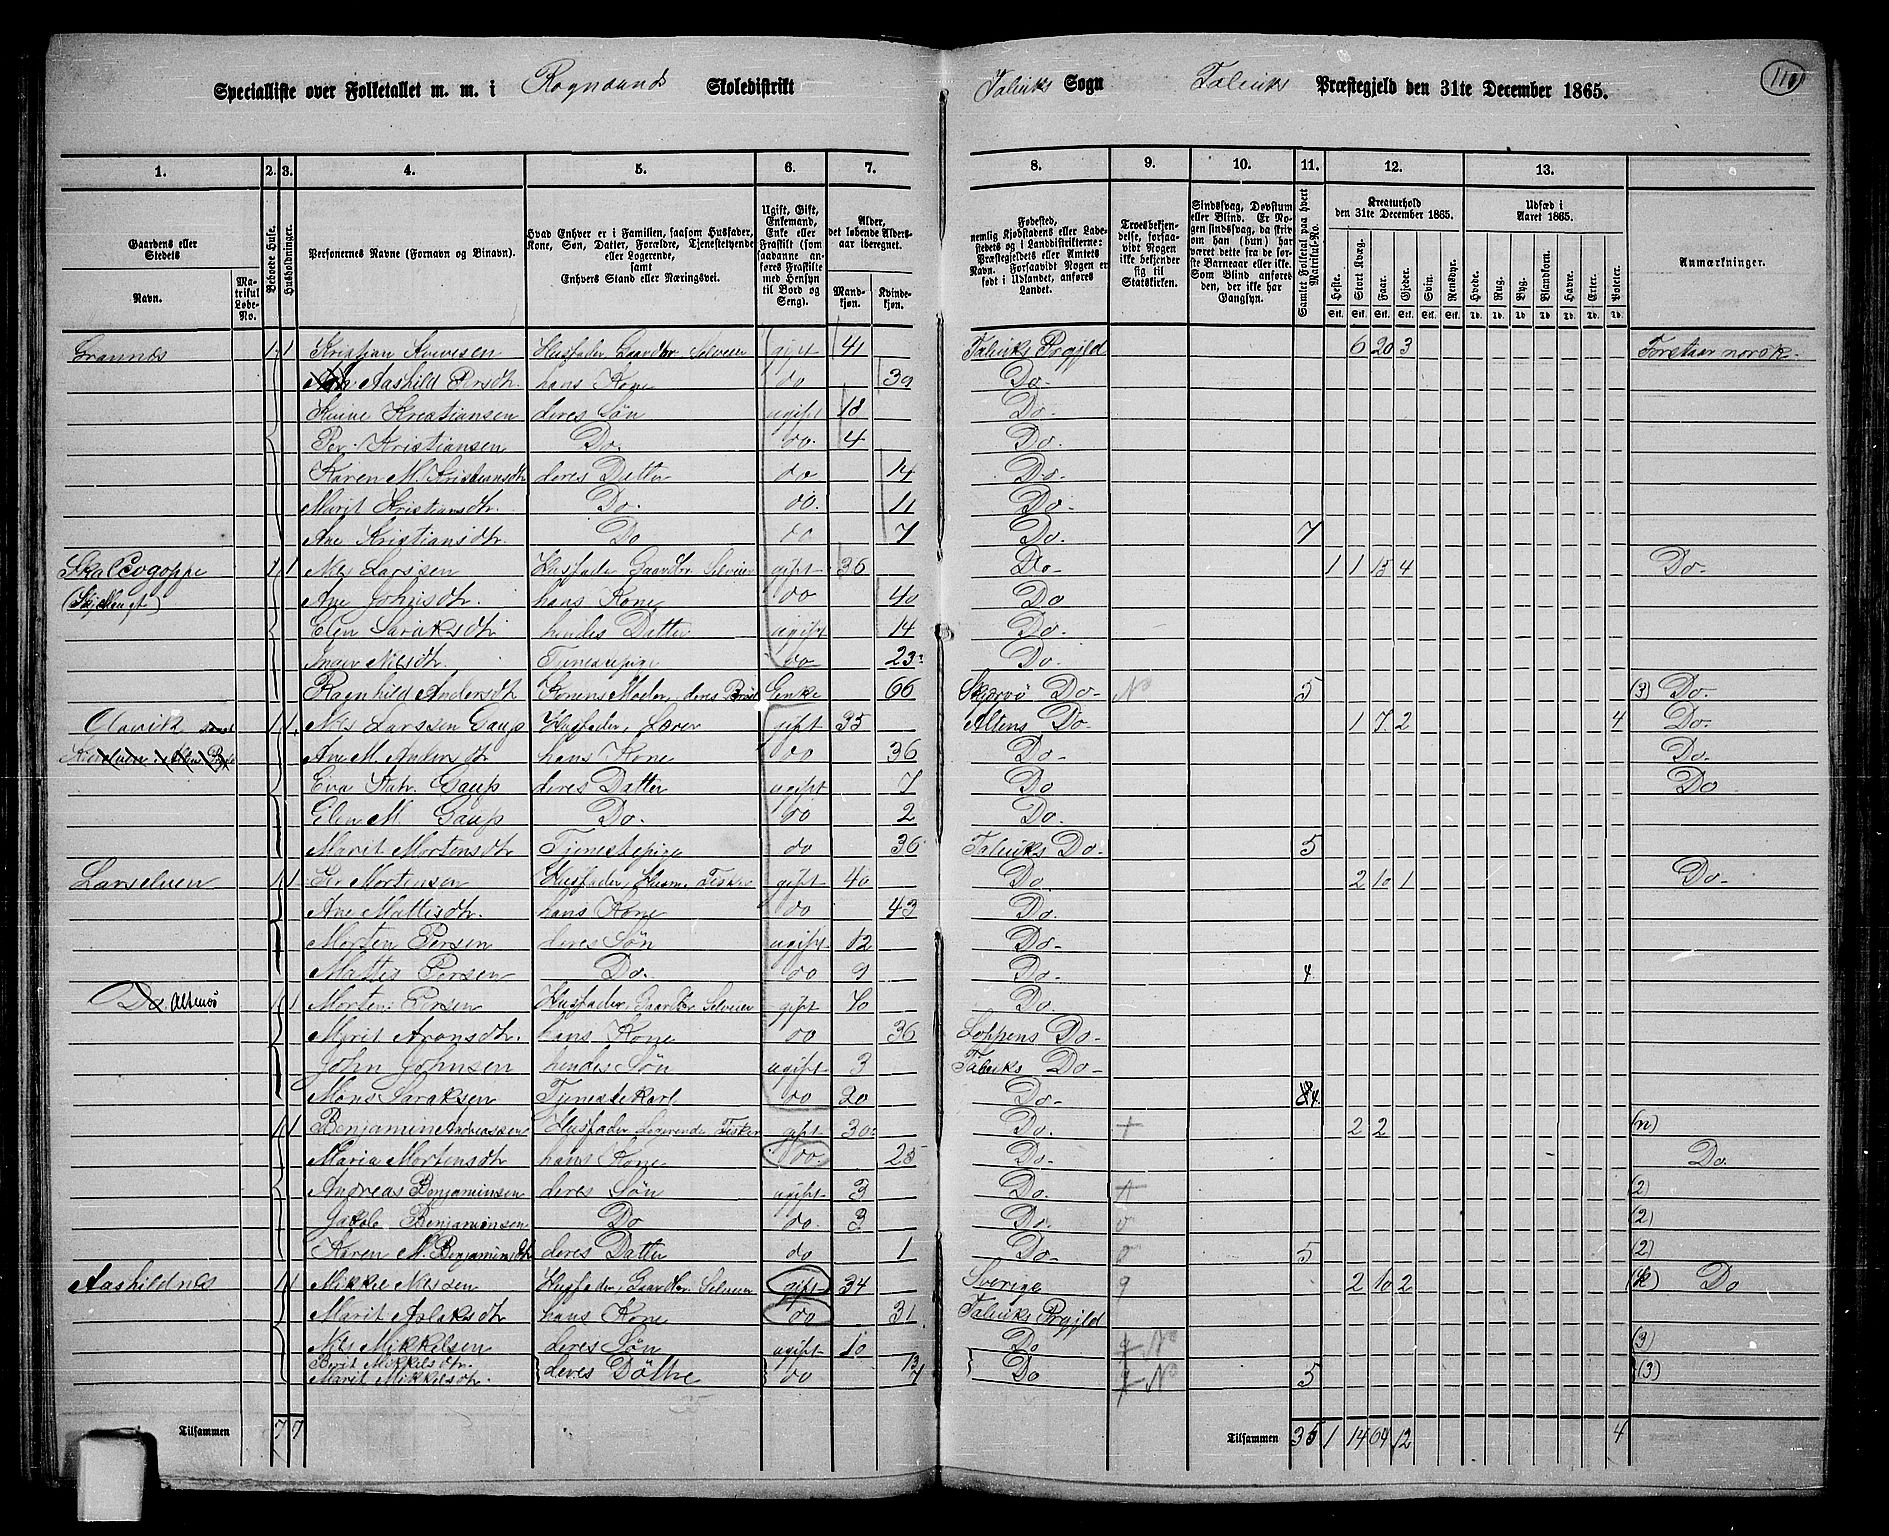 Specialliste over Folketallet m. m. i Rognsunds Skoledistrikt Talviks Sogn Talviks Præstegjeld den 31te December 1865. 110
1. 2. 3. 4. 5. 6. 7. 8. 9. 10. 11. 12. 13.
Gaardens eller Stedets Navn. Matrikul Løbe-No. Beboede Huse. Husholdninger. Personernes Navne (Fornavn og Binavn). Hvad Enhver er i Familien, saasom Husfader, Kone, Søn, Datter, Forældre, Tjenestetyende eller Logerende, samt Enhvers Stand eller Næringsvei. Ugift, Gift, Enkemand, Enke eller Fraskilt (som saadanne anføres Fraskilte med Hensyn til Bord og Seng). Alder, det løbende Aldersaar iberegnet. Mandkjøn. Kvindekjøn.
Fødested, nemlig Kjøbstadens eller Ladestedets og i Landdistrikterne: Præstegjeldets eller Amtets Navn. Forsaavidt Nogen er født i Udlandet, anføres Landet. Troesbekjendelse, forsaavidt Nogen ikke bekjender sig til Statskirken. Sindssvag, Døvstum eller Blind. Samlet Folketal paa hvert Matrikul-No. Kreaturhold den 31te December 1865. Heste. Stort Kvæg. Faar. Gjeder. Svin. Rensdyr. Udsæd i Aaret 1865. Hvede. Rug. Byg. Blandkorn. Havre. Erter. Poteter. Anmærkninger.
Grannes 1 1 Kristian Iversen Husfader, Gaardbr Selveier gift 41 Talviks Prgjld 6 20 3 Forstaar norsk.
Aashild Persdtr. hans Kone do 39 Do.
Kristiansen deres Søn ugift 18 Do.
Per Kristiansen Do. do. 4 Do.
Karen M. Kristiansdtr deres Datter do 14 Do.
Marit Kristiansdtr. Do. do. 11 Do.
Ane Kristiansdtr. Do do 7 Do. 7
1 1 Nils Larssen Husfader Gaardbr. Selveier gift 36 Do. 1 1 15 4 Do.
Ane Johnsdtr. hans Kone do 40 Do
Elen Saraksdtr hendes Datter ugift 14 Do.
Inger Nilsdtr. Tjenestepige do 23 Do.
Ragnhild Andersdtr Konens Moder, deres Enke 66 Skjervö Do. No 5 (3) Do.
1 1 Nils Larssen Gaup Husfader, Lærer gift 35 Altens Do. 1 7 2 4 Do.
Ane M. Andersdtr hans Kone do 36 Do. Do.
Eva Gaup deres Datter ugift 7 Do Do
Elen M. Gaup Do. do 2 Do.
Marit Mortensdtr Tjenestepige do 36 Talviks Do. 5
Larselven 1 1 Per Mortensen Husfader, Husm. Fisker gift 40 Do. 2 10 1 Do.
Ane Mattisdtr. hans Kone do 43 Do.
Morten Persen deres Søn ugift 12 Do.
Mattis Persen Do. do 9 Do. 4
Do. Altenes 1 1 Morten Persen Husfader, Gaardbr Selveier gift 40 Do.
Marit Aronsdtr. hans Kone do 36 Loppens Do.
John Johnsen hendes Søn ugift 3 Talviks Do.
Mons Saraksen Tjenestekarl do 20 Do. 4
1 1 Benjamin Andreassen Husfader Logerende Fisker gift 30 Do. + 2 2 (n)
Maria Mortensdtr hans Kone do. 25 Do. Do.
Andreas Benjaminsen deres Søn ugift 3 Do. (2)
Jakob Benjaminsen Do do. 3 Do. (2)
Karen M. Benjaminsdtr deres Datter do 1 Do. 5 (2)
Aashildnes 1 1 Mikkel Nilssen Husfader, Gaardbr. Selveier gift 34 Sverige q 2 10 2 (k) Do
Marit Aslaksdtr hans Kone do 31 Talviks Prgjld
Nils Mikkelsen deres Søn ugift 10 Do No (3)
Berit Mikkelsdtr.
Marit Mikkelsdtr. deres Døttre do Do No 5 (3)
Tilsammen 7 7 Tilsammen 35 1 14 64 12 4